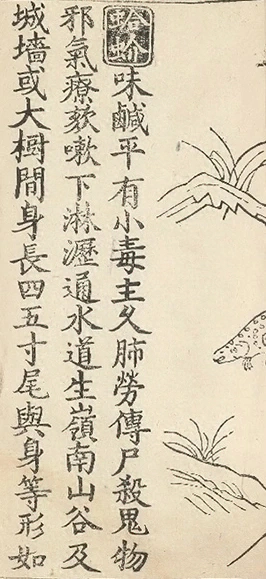 蛤蚧味鹹平有小毒主久肺勞傳尸殺鬼物
邪氣療欬嗽下淋瀝通水道生嶺南山谷及
城墻或大樹間身長四五寸尾與身等形如